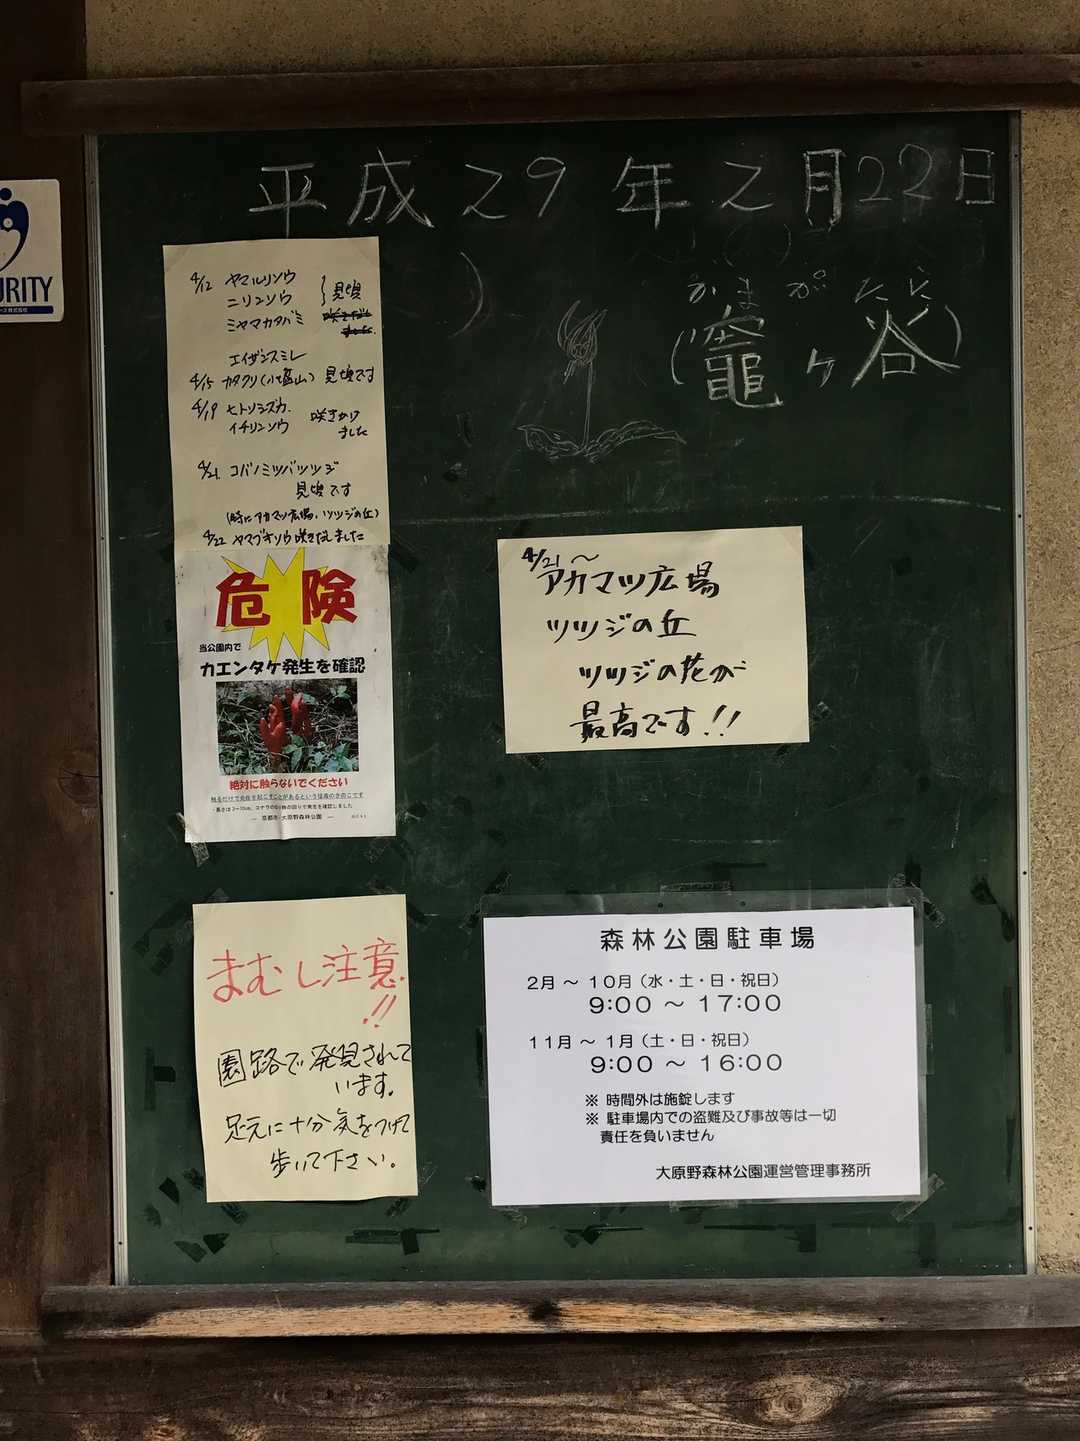 平成29年2月22日
かまがたに
(竈ヶ谷)
URITY
4/12 ヤマルリソウ
ニリンソウ
ミヤマカタバミ
見頃
エイザンスミレ
4/15 カタクリ(小塩山) 見頃です
4/19 ヒトリシズカ.
イチリンソウ
咲きかけ
ました
4/21. コバノミツバツツジ
見頃です
(特にアカマツ広場、ツツジの丘)
4/22 ヤマブキソウ咲きだしました
危険
当公園内で
カエンタケ発生を確認
絶対に触らないでください
触るだけで炎症を起こすことがあるという猛毒のきのこです
― 京都市・大原野森林公園 ―
4/21〜
アカマツ広場
ツツジの丘
ツツジの花が
最高です!!
まむし注意!!
園路で発見されて
います。
足元に十分気をつけて
歩いて下さい。
森林公園駐車場
2月 ～ 10月（水・土・日・祝日）
9:00 ～ 17:00
11月 ～ 1月（土・日・祝日）
9:00 ～ 16:00
※ 時間外は施錠します
※ 駐車場内での盗難及び事故等は一切
責任を負いません
大原野森林公園運営管理事務所